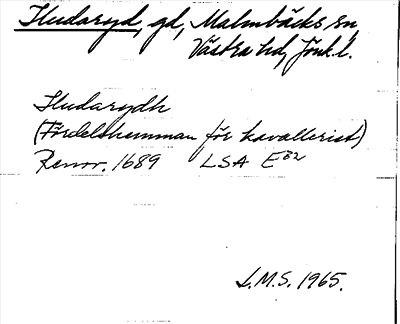 Fludaryd, gd, Malmbäcks sn
Västra hd, Jönk.l.
Fludarydh
(Fördelshemman för kavallerist)
Renov. 1689 LSA E32
L.M.S. 1965.